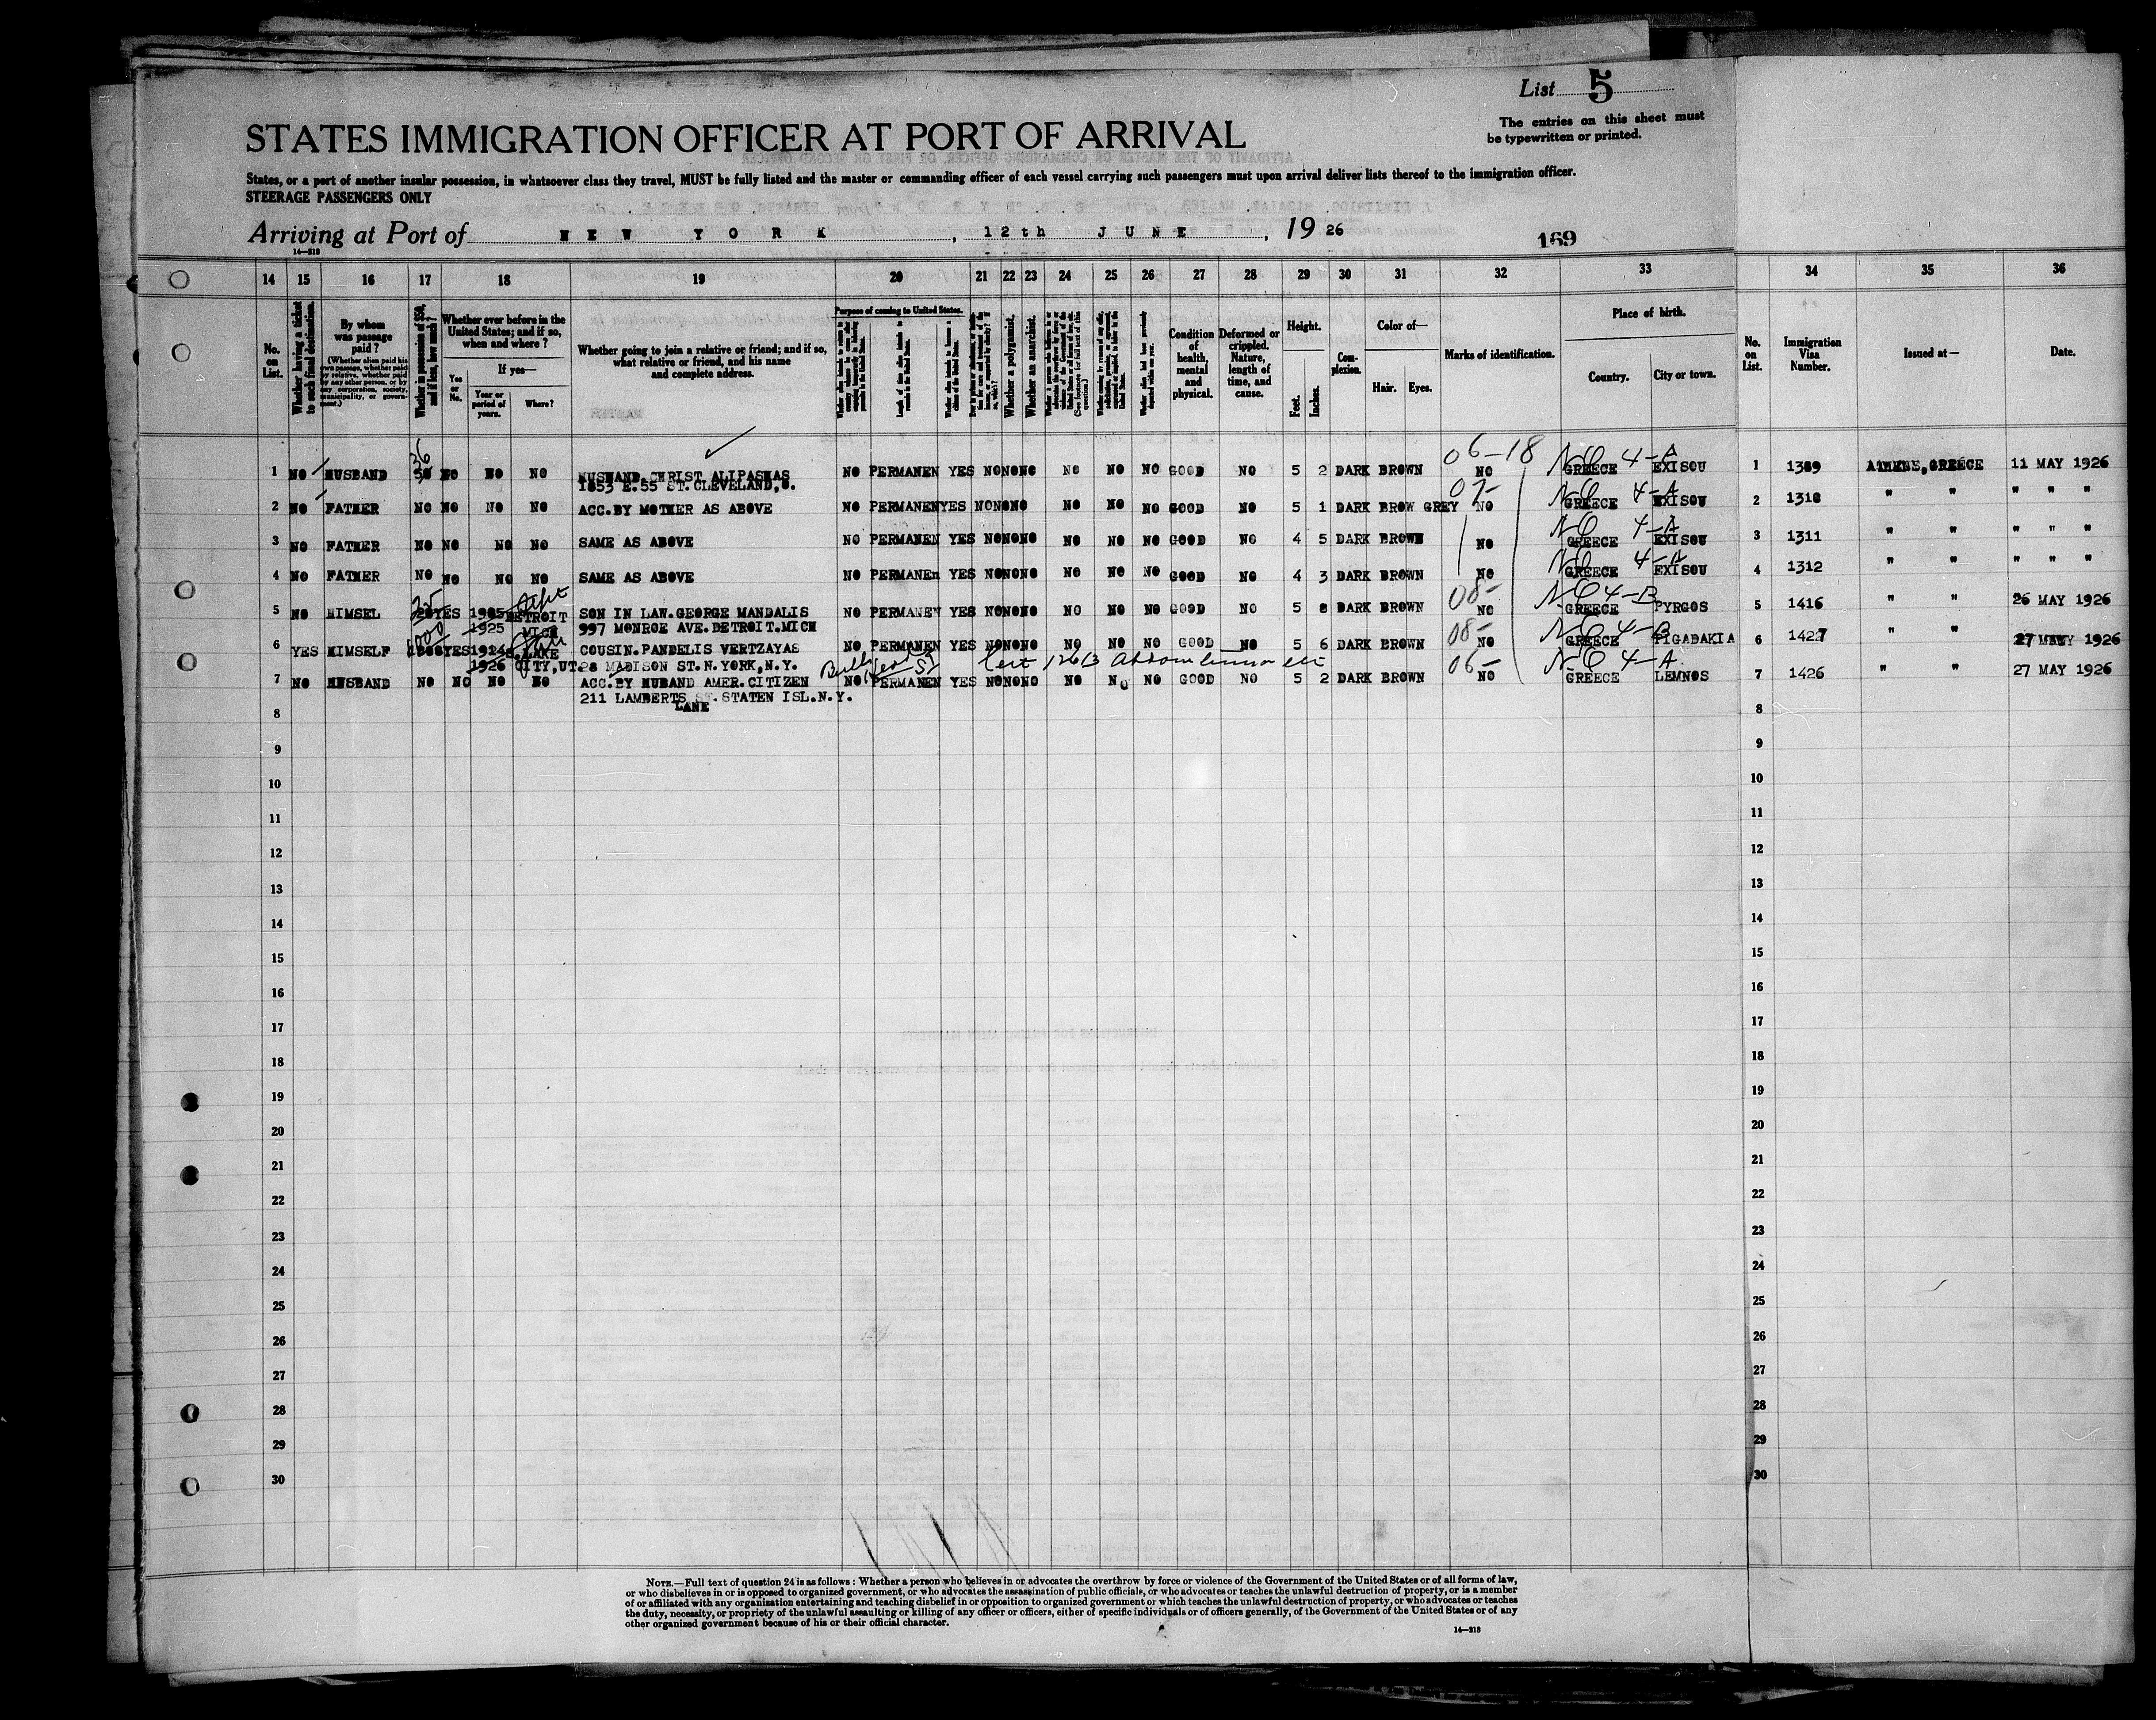 List 5
The entries on this sheet must
be typewritten or printed.
STATES IMMIGRATION OFFICER AT PORT OF ARRIVAL
States, or a port of another insular possession, in whatsoever class they travel, MUST be fully listed and the master or commanding officer of each vessel carrying such passengers must upon arrival deliver lists thereof to the immigration officer.
STEERAGE PASSENGERS ONLY
Arriving at Port of NEW YORK, 12th JUNE, 1926
14—213
169
14 15 16 17 18 19 20 21 22 23 24 25 26 27 28 29 30 31 32 33 34 35 36
No. on List.
Whether having a ticket to such final destination.
By whom was passage paid?
(Whether alien paid his own passage, whether paid by relative, whether paid by any other person, or by any corporation, society, municipality, or government.)
Whether in possession of $50, and if less, how much?
Whether ever before in the United States; and if so, when and where?
If yes—
Yes or No.
Year or period of years.
Where?
Whether going to join a relative or friend; and if so, what relative or friend, and his name and complete address.
Purpose of coming to United States.
Length of time alien intends to remain in the United States.
Whether alien intends to become a citizen of the United States.
Whether a polygamist.
Whether an anarchist.
Condition of health, mental and physical.
Deformed or crippled. Nature, length of time, and cause.
Height.
Feet.
Inches.
Complexion.
Color of—
Hair.
Eyes.
Marks of identification.
Place of birth.
Country.
City or town.
No. on List.
Immigration Visa Number.
Issued at—
Date.
36 06-18 NQ 4-A
1 NO HUSBAND 50 NO NO NO HUSBAND.CHRIST ALIPASHAS NO PERMANEN YES NO NO NO NO NO NO GOOD NO 5 2 DARK BROWN NO GREECE EXISOU 1 1309 ATHENS,GREECE 11 MAY 1926
1853 E.55 ST.CLEVELAND,O.
07- NQ 4-A
2 NO FATHER NO NO NO NO ACC.BY MOTHER AS ABOVE NO PERMANEN YES NO NO NO NO NO NO GOOD NO 5 1 DARK BROW GREY NO GREECE EXISOU 2 1310 " " " " "
NQ 4-A
3 NO FATHER NO NO NO NO SAME AS ABOVE NO PERMANEN YES NO NO NO NO NO NO GOOD NO 4 5 DARK BROWN NO GREECE EXISOU 3 1311 " " " " "
NQ 4-A
4 NO FATHER NO NO NO NO SAME AS ABOVE NO PERMANEn YES NO NO NO NO NO NO GOOD NO 4 3 DARK BROWN NO GREECE EXISOU 4 1312 " " " " "
25 08- NQ 4-B
5 NO HIMSEL 20 YES 1905 DETROIT SON IN LAW.GEORGE MANDALIS NO PERMANEN YES NO NO NO NO NO NO GOOD NO 5 8 DARK BROWN NO GREECE PYRGOS 5 1416 " " 26 MAY 1926
1925 MICH 997 MONROE AVE.DETROIT.MICH
1000 08- NQ 4-B
6 YES HIMSELF YES 1914 S.LAKE COUSIN.PANDELIS VERTZAYAS NO PERMANEN YES NO NO NO NO NO NO GOOD NO 5 6 DARK BROWN NO GREECE PIGADAKIA 6 1427 " " 27 MAY 1926
1926 CITY,UT. 28 MADISON ST.N.YORK,N.Y.
06- NQ 4-A
7 NO HUSBAND NO NO NO NO ACC.BY HUBAND AMER.CITIZEN NO PERMANEN YES NO NO NO NO NO NO GOOD NO 5 2 DARK BROWN NO GREECE LEMNOS 7 1426 " " 27 MAY 1926
211 LAMBERTS ST.STATEN ISL.N.Y.
LANE
8 8
9 9
10 10
11 11
12 12
13 13
14 14
15 15
16 16
17 17
18 18
19 19
20 20
21 21
22 22
23 23
24 24
25 25
26 26
27 27
28 28
29 29
30 30
NOTE.—Full text of question 24 is as follows: Whether a person who believes in or advocates the overthrow by force or violence of the Government of the United States or of all forms of law,
or who disbelieves in or is opposed to organized government, or who advocates the assassination of public officials, or who advocates or teaches the unlawful destruction of property, or is a member
of or affiliated with any organization entertaining and teaching disbelief in or opposition to organized government or which teaches the unlawful destruction of property, or who advocates or teaches
the duty, necessity, or propriety of the unlawful assaulting or killing of any officer or officers, either of specific individuals or of officers generally, of the Government of the United States or of any
other organized government because of his or their official character.
14—213